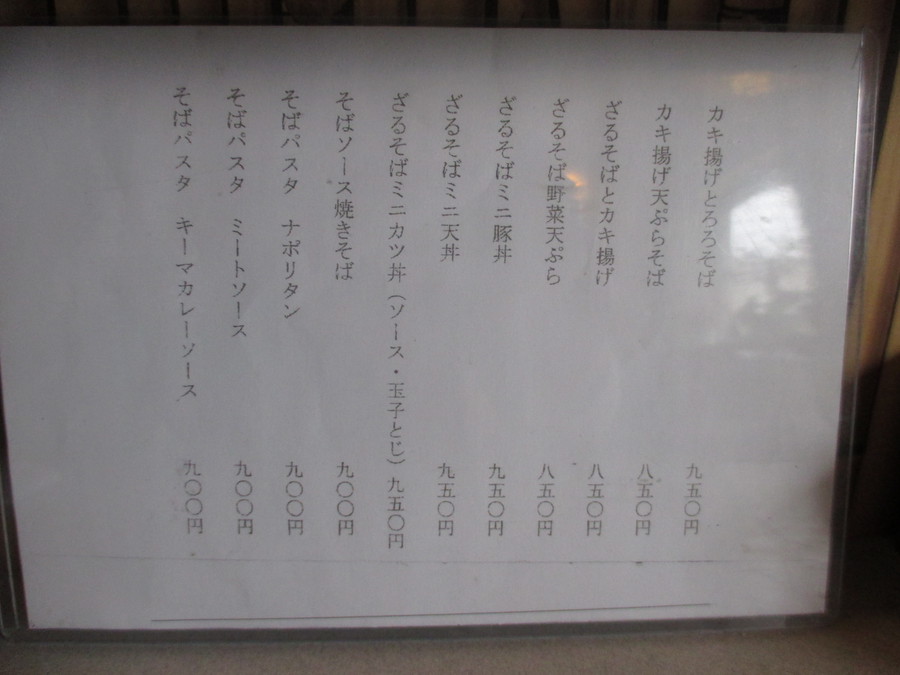 カキ揚げとろろそば 九五〇円
カキ揚げ天ぷらそば 八五〇円
ざるそばとカキ揚げ 八五〇円
ざるそば野菜天ぷら 八五〇円
ざるそばミニ豚丼 九五〇円
ざるそばミニ天丼 九五〇円
ざるそばミニカツ丼（ソース・玉子とじ）九五〇円
そばソース焼きそば 九〇〇円
そばパスタ ナポリタン 九〇〇円
そばパスタ ミートソース 九〇〇円
そばパスタ キーマカレーソース 九〇〇円